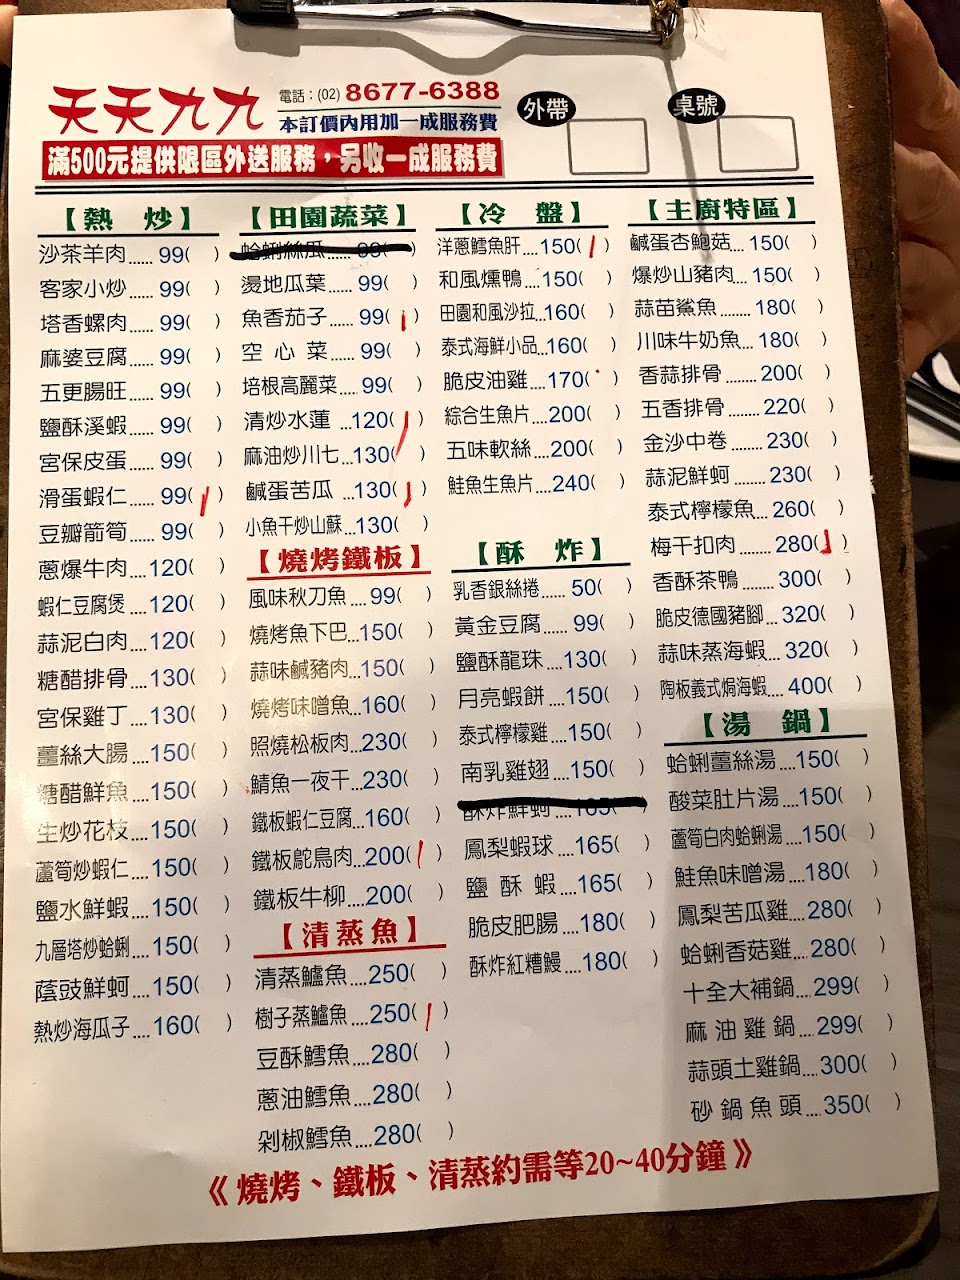 天天九九
電話：(02) 8677-6388
本訂價內用加一成服務費
滿500元提供限區外送服務，另收一成服務費
外帶
桌號
【熱 炒】
沙茶羊肉......99( )
客家小炒......99( )
塔香螺肉......99( )
麻婆豆腐......99( )
五更腸旺......99( )
鹽酥溪蝦......99( )
宮保皮蛋......99( )
滑蛋蝦仁......99( )
豆瓣箭筍......99( )
蔥爆牛肉....120( )
蝦仁豆腐煲....120( )
蒜泥白肉....120( )
糖醋排骨....130( )
宮保雞丁....130( )
薑絲大腸....150( )
糖醋鮮魚....150( )
生炒花枝....150( )
蘆筍炒蝦仁....150( )
鹽水鮮蝦....150( )
九層塔炒蛤蜊....150( )
蔭豉鮮蚵....150( )
熱炒海瓜子....160( )
【田園蔬菜】
蛤蜊絲瓜......99( )
燙地瓜葉......99( )
魚香茄子......99( )
空 心 菜......99( )
培根高麗菜......99( )
清炒水蓮 ...120( )
麻油炒川七...130( )
鹹蛋苦瓜 ....130( )
小魚干炒山蘇...130( )
【燒烤鐵板】
風味秋刀魚....99( )
燒烤魚下巴...150( )
蒜味鹹豬肉...150( )
燒烤味噌魚....160( )
照燒松板肉...230( )
鯖魚一夜干...230( )
鐵板蝦仁豆腐...160( )
鐵板鴕鳥肉...200( )
鐵板牛柳....200( )
【清蒸魚】
清蒸鱸魚....250( )
樹子蒸鱸魚....250( )
豆酥鱈魚....280( )
蔥油鱈魚....280( )
剁椒鱈魚....280( )
【冷 盤】
洋蔥鱈魚肝....150( )
和風燻鴨....150( )
田園和風沙拉...160( )
泰式海鮮小品...160( )
脆皮油雞....170( )
綜合生魚片....200( )
五味軟絲....200( )
鮭魚生魚片....240( )
【酥 炸】
乳香銀絲捲...... 50( )
黃金豆腐...... 99( )
鹽酥龍珠....130( )
月亮蝦餅....150( )
泰式檸檬雞....150( )
南乳雞翅....150( )
酥炸鮮蚵....165( )
鳳梨蝦球....165( )
鹽 酥 蝦....165( )
脆皮肥腸....180( )
酥炸紅糟鰻....180( )
【主廚特區】
鹹蛋杏鮑菇....150( )
爆炒山豬肉....150( )
蒜苗鯊魚......180( )
川味牛奶魚...180( )
香蒜排骨........200( )
五香排骨........220( )
金沙中卷........230( )
蒜泥鮮蚵........230( )
泰式檸檬魚....260( )
梅干扣肉........280( )
香酥茶鴨........300( )
脆皮德國豬腳....320( )
蒜味蒸海蝦....320( )
陶板義式焗海蝦....400( )
【湯 鍋】
蛤蜊薑絲湯....150( )
酸菜肚片湯....150( )
蘆筍白肉蛤蜊湯....150( )
鮭魚味噌湯....180( )
鳳梨苦瓜雞....280( )
蛤蜊香菇雞....280( )
十全大補鍋....299( )
麻 油 雞 鍋....299( )
蒜頭土雞鍋....300( )
砂 鍋 魚 頭....350( )
《 燒烤、鐵板、清蒸約需等20~40分鐘 》